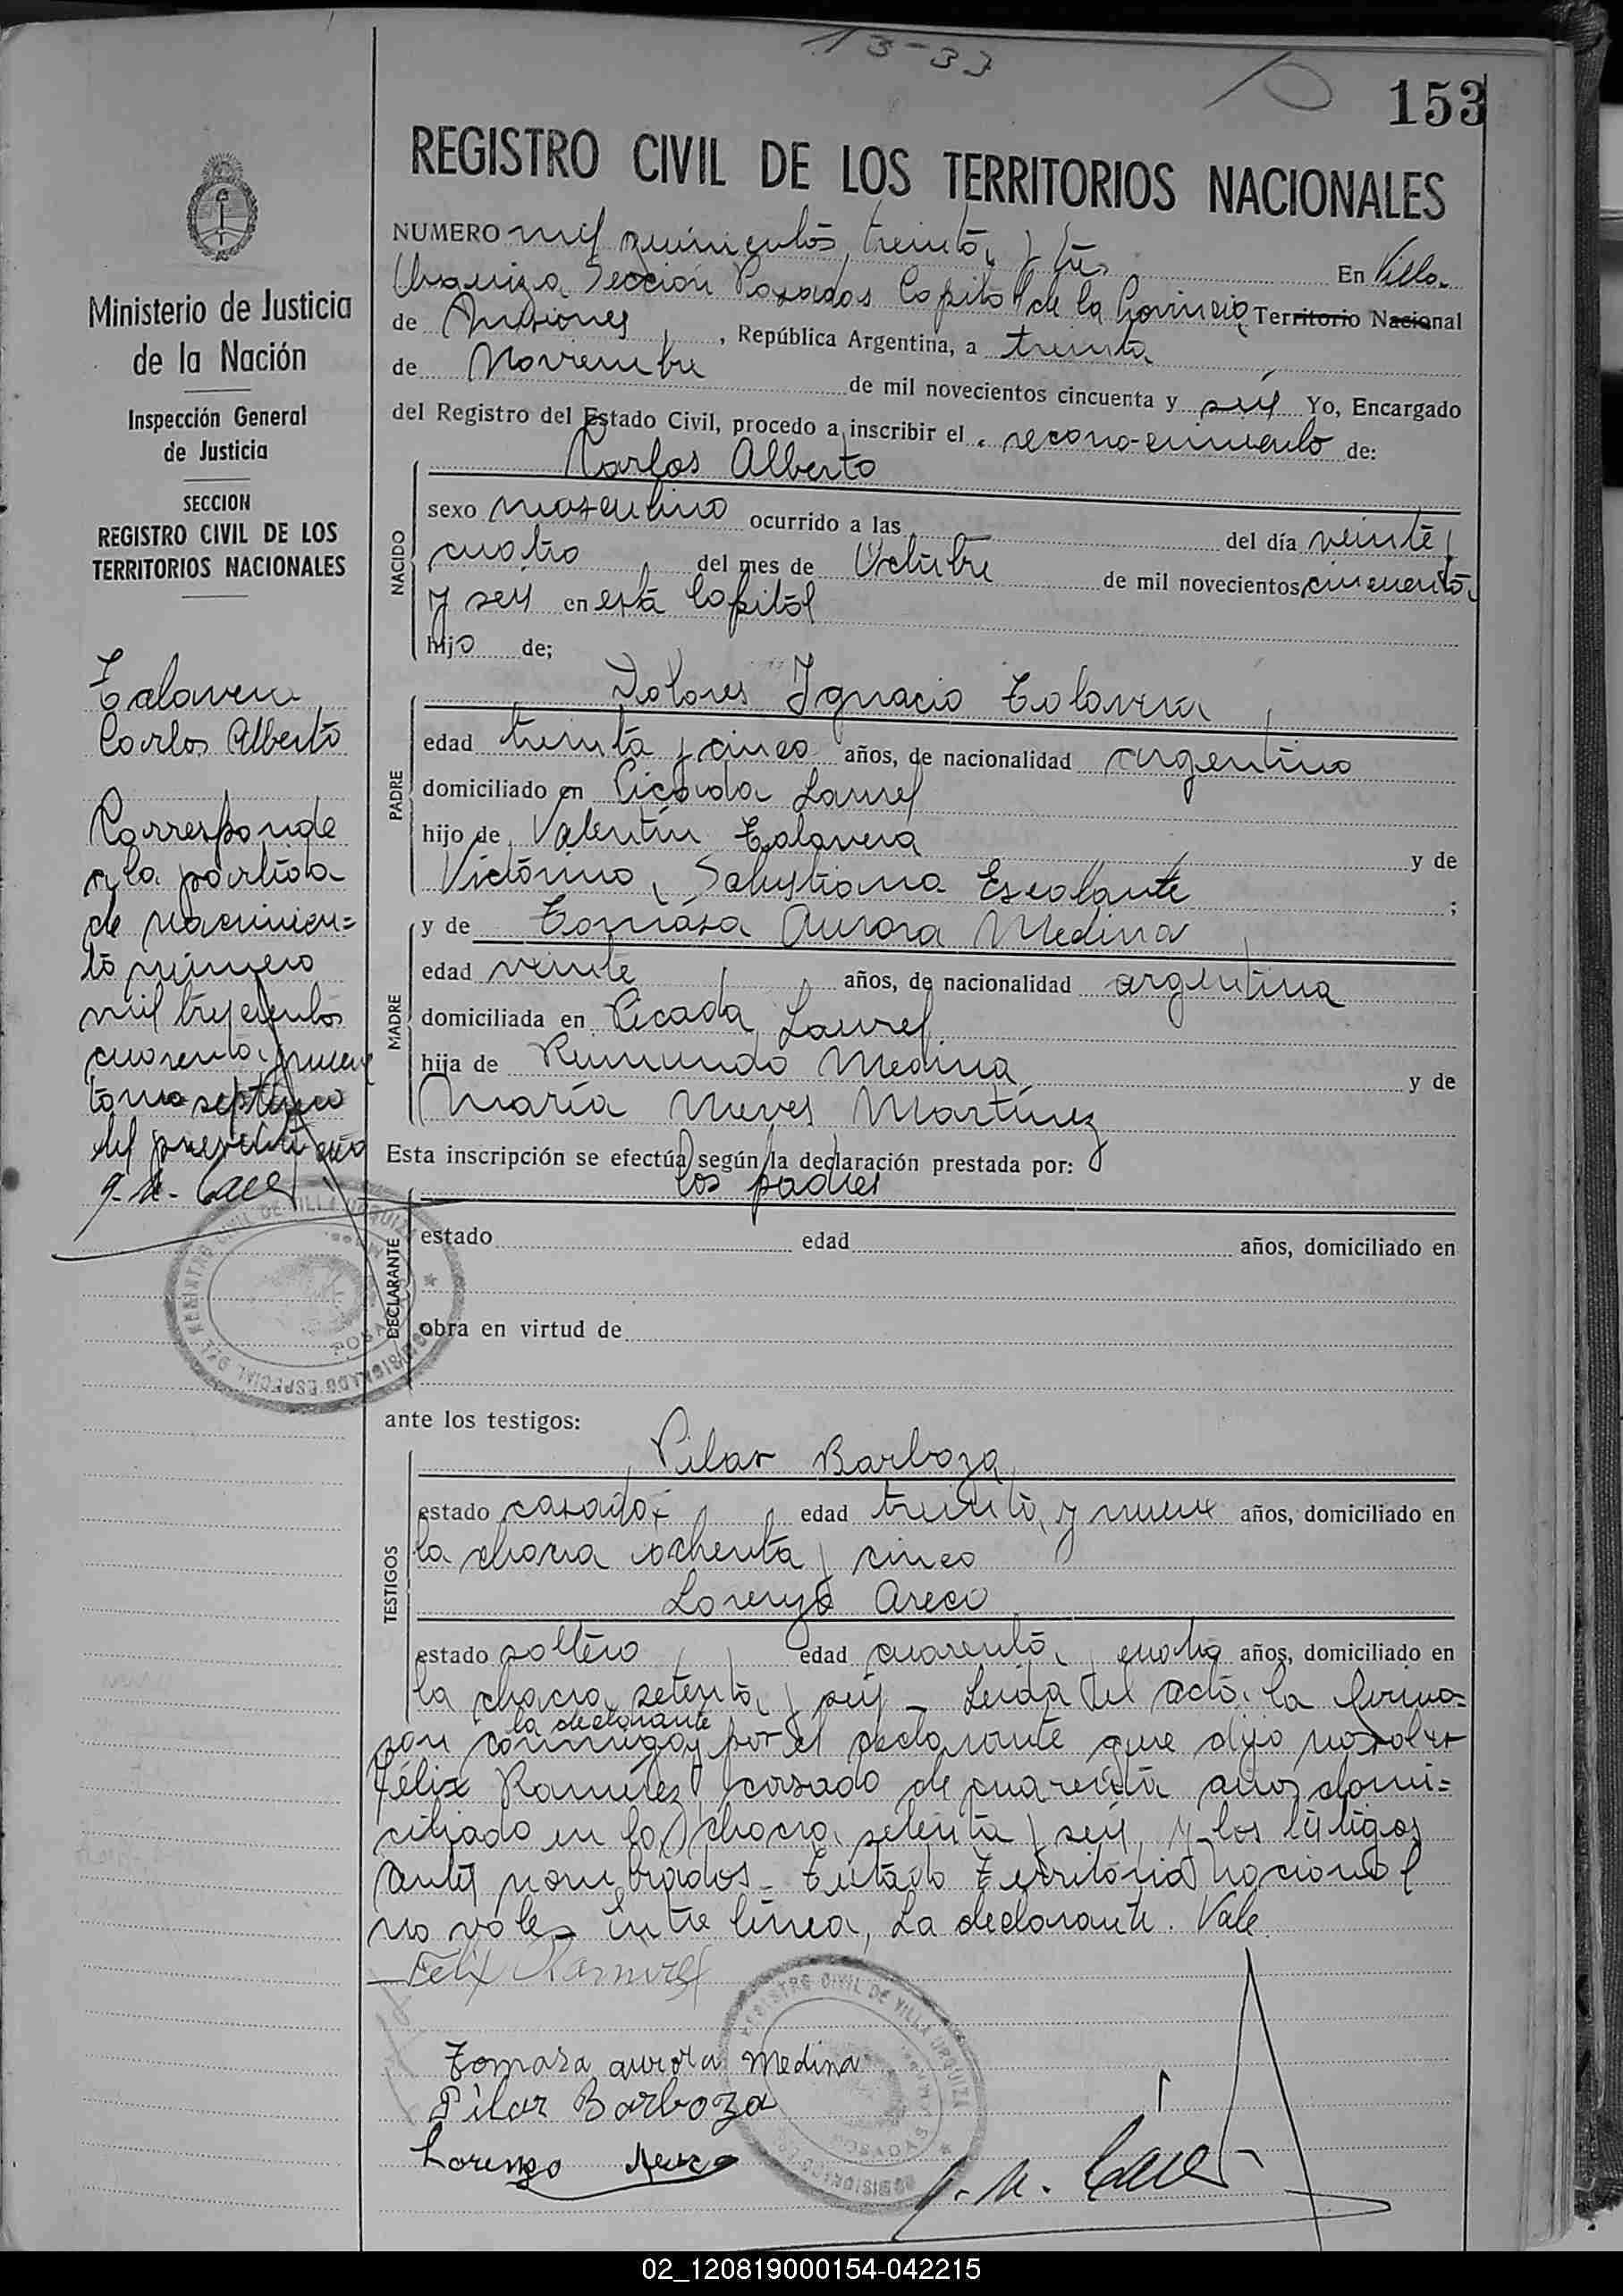 13-33
153
REGISTRO CIVIL DE LOS TERRITORIOS NACIONALES
Ministerio de Justicia
de la Nación
Inspección General
de Justicia
SECCION
REGISTRO CIVIL DE LOS
TERRITORIOS NACIONALES
Talavera
Carlos Alberto
Corresponde
a la partida
de nacimien=
to número
mil trescientos
cuarenta y nueve
tomo septimo
del presente año
NUMERO mil quinientos treinta y tres En Villa
Urquiza Sección Posadas Capital de la Provincia Territorio Nacional
de Misiones, República Argentina, a treinta
de Noviembre de mil novecientos cincuenta y seis Yo, Encargado
del Registro del Estado Civil, procedo a inscribir el reconocimiento de:
Carlos Alberto
NACIDO
sexo masculino ocurrido a las del día veinte y
cuatro del mes de Octubre de mil novecientos cincuenta
y seis en esta Capital
hijo de;
Dolores Ignacio Talavera
PADRE
edad treinta y cinco años, de nacionalidad argentino
domiciliado en Picada Laurel
hijo de Valentín Talavera y de
Victorina Salustiana Escalante ;
y de Tomása Aurora Medina
MADRE
edad veinte años, de nacionalidad argentina
domiciliada en Picada Laurel
hija de Rimundo Medina y de
María Nieves Martínez
Esta inscripción se efectúa según la declaración prestada por:
los padres
DECLARANTE
estado edad años, domiciliado en
obra en virtud de
ante los testigos:
Pilar Barboza
TESTIGOS
estado casado edad treinta y nueve años, domiciliado en
la chacra ochenta y cinco
Lorenzo Areco
estado soltero edad cuarenta y cuatro años, domiciliado en
la chacra setenta y seis - Leida el acta la firma=
la declarante
ron conmigo y por el declarante que dijo no saber
Félix Ramírez, casado de cuarenta años domi=
ciliado en la chacra setenta y seis, y los testigos
antes nombrados - Testado Territorio Nacional
no vale - Entre línea, La declarante. Vale
Felix Ramirez
Tomasa aurora Medina
Pilar Barboza
Lorenzo Areco
REGISTRO CIVIL DE VILLA URQUIZA
POSADAS
02_120819000154-042215